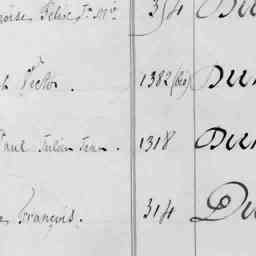 Félix Jn Mie 314 Du
Victor. 1382 (bis) Du
Paul Julien Jean. 1318 Du
François. 314 Du